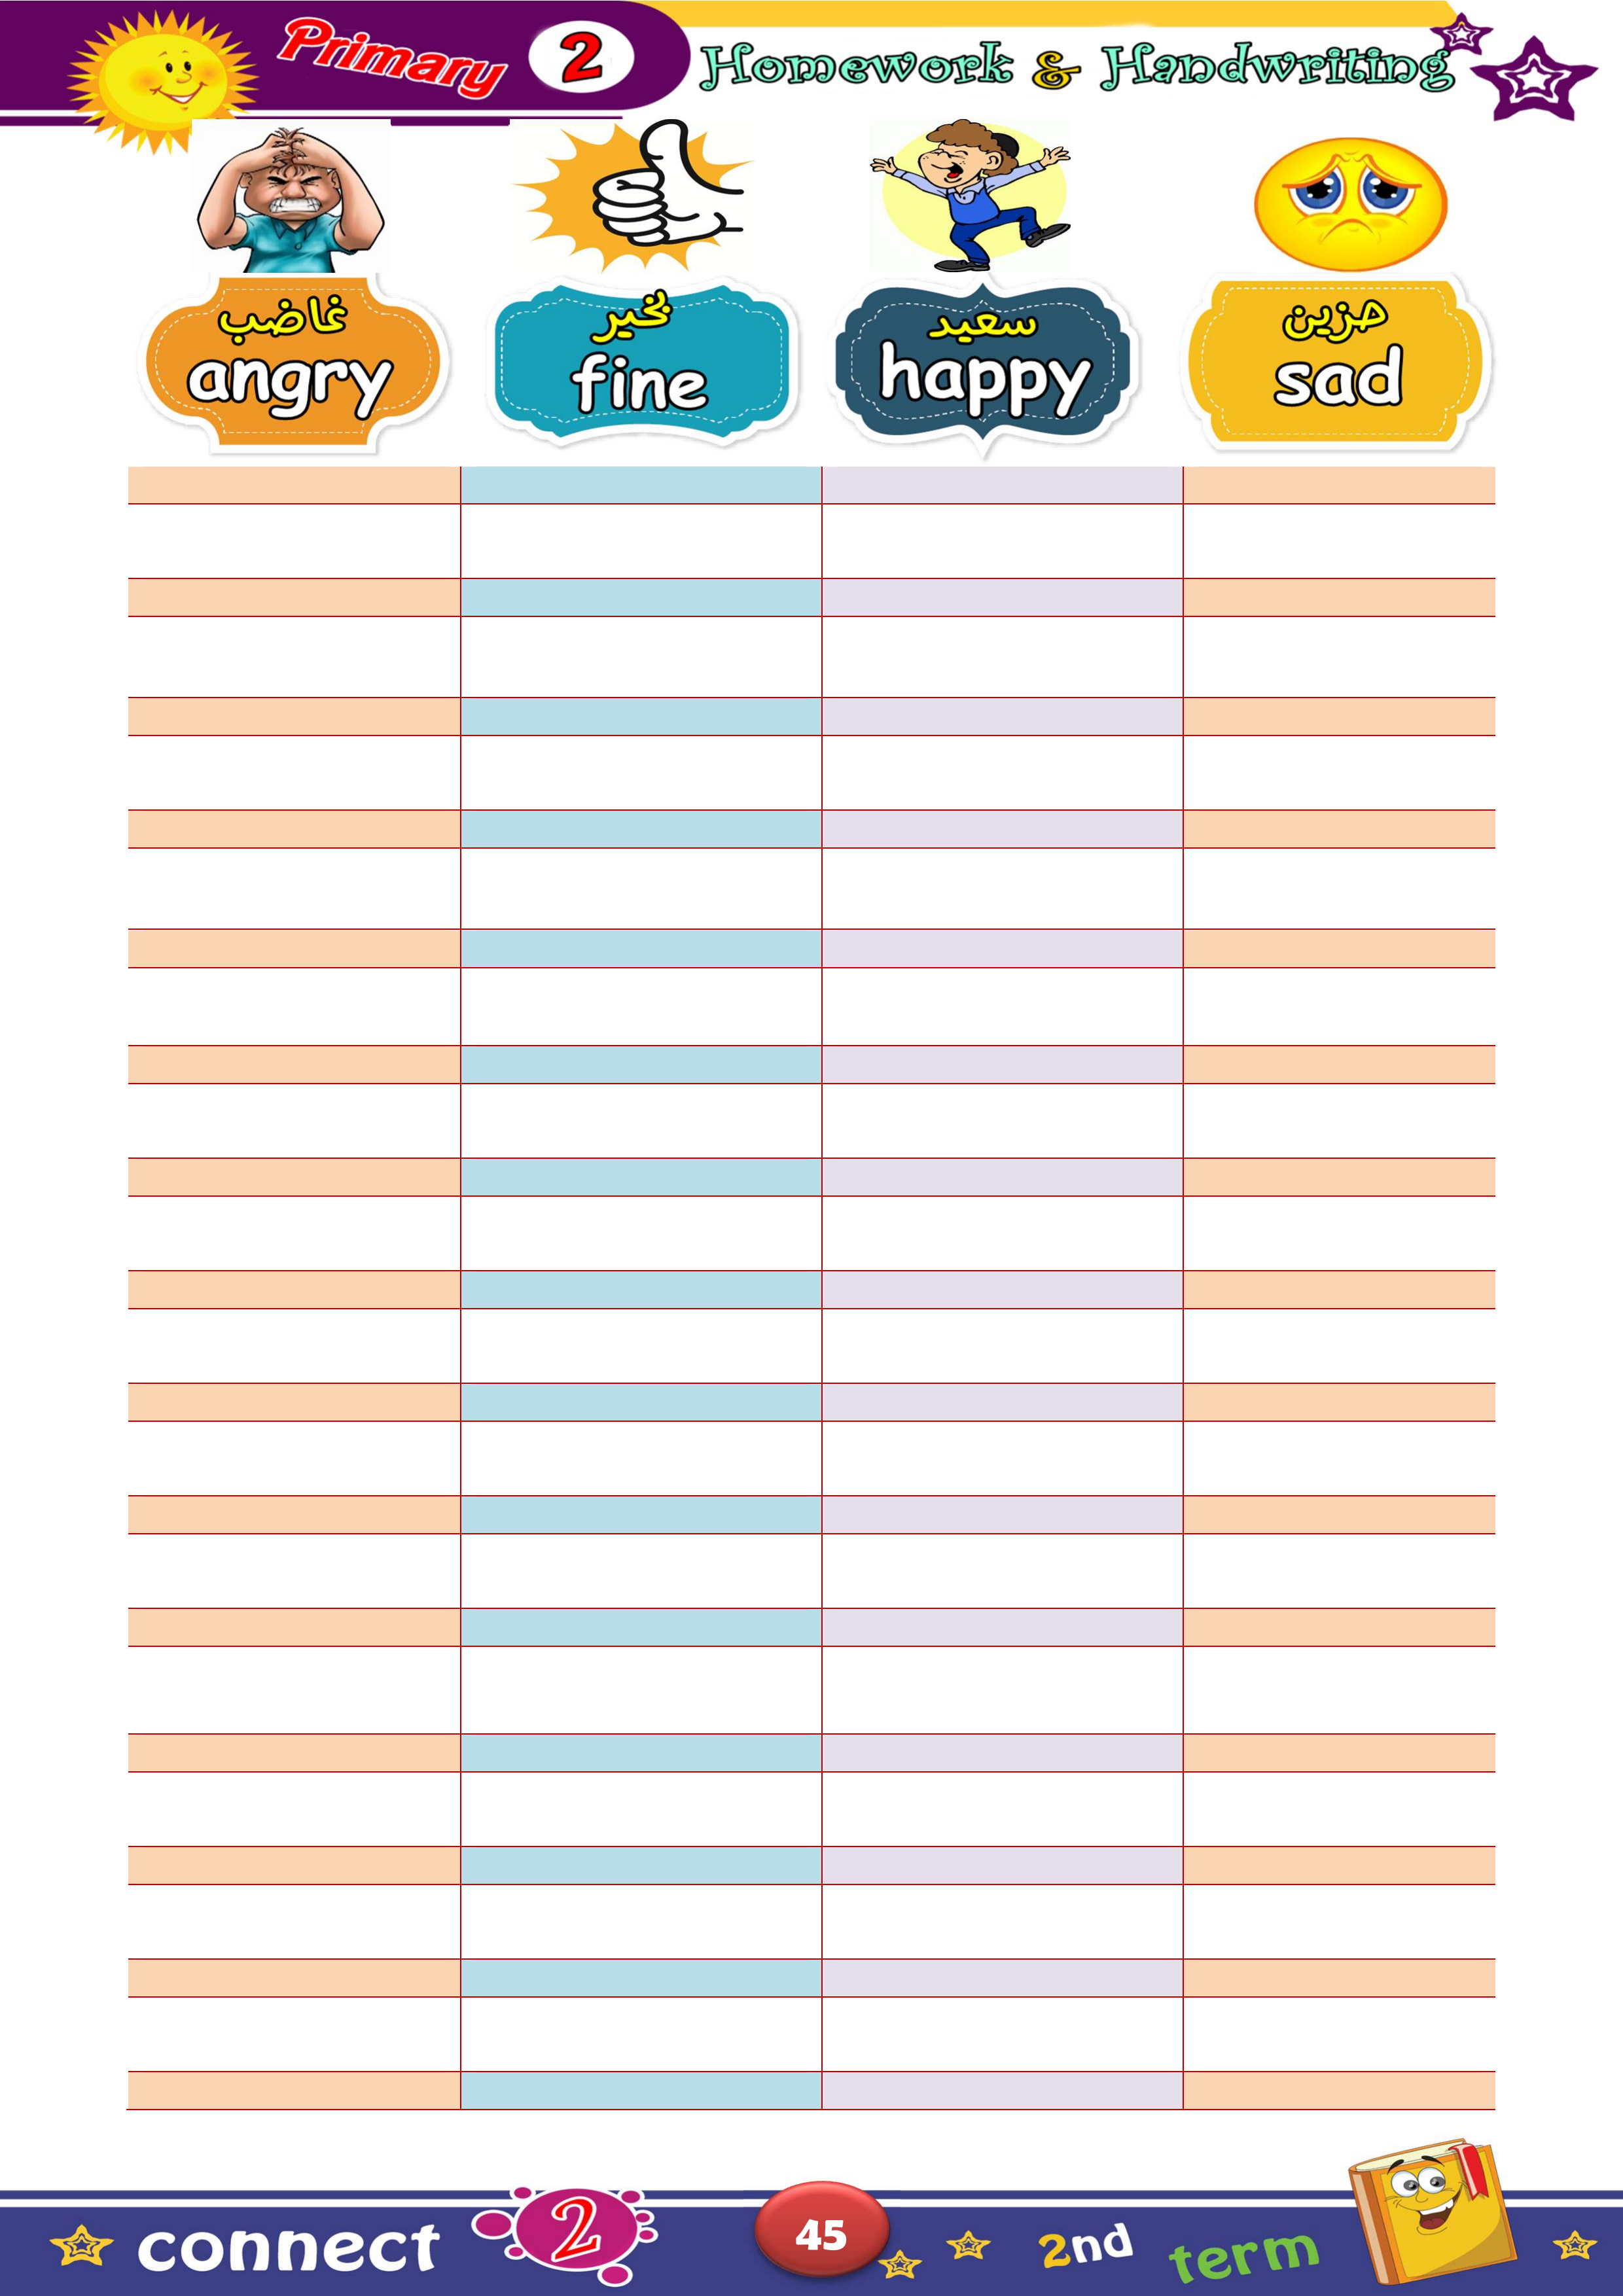 Primary 2 Homework & Handwriting
غاضب
angry
بخير
fine
سعيد
happy
حزين
sad
connect 2 45 2nd term